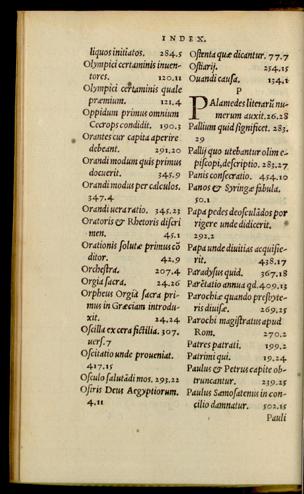 INDEX.
liquos initiatos. 284.5
Olympici certaminis inuen-
tores. 120.11
Olympici certaminis quale
præmium. 121.4
Oppidum primus omnium
Cecrops condidit. 190.3
Orantes cur capita aperire
debeant. 291.20
Orandi modum quis primus
docuerit. 345.9
Orandi modus per calculos.
347.4
Orandi uera ratio. 345.23
Oratoris & Rhetoris discri
men. 45.1
Orationis solutæ primus cõ
ditor. 42.9
Orchestra. 207.4
Orgia sacra. 24.26
Orpheus Orgia sacra pri-
mus in Græciam introdu-
xit. 24.24
Oscilla ex cera fictilia. 307.
uers.7
Oscitatio unde proueniat.
417.15
Osculo salutãdi mos. 293.22
Osiris Deus Aegyptiorum.
4.11
Ostenta quæ dicantur. 77.7
Ostiarij. 254.15
Ouandi causa. 134.1
P
PAlamedes literarũ nu-
merum auxit. 26.28
Pallium quid significet. 283.
29
Pallij quo utebantur olim e-
piscopi, descriptio. 283.27
Panis consecratio. 454.10
Panos & Syringæ fabula.
50.1
Papa pedes deosculãdos por
rigere unde didicerit.
292.2
Papa unde diuitias acquisie-
rit. 438.17
Paradysus quid. 367.18
Parẽtatio annua qd. 409.13
Parochiæ quando presbyte-
ris diuisæ. 269.25
Parochi magistratus apud
Rom. 270.2
Patres patrati. 199.2
Patrimi qui. 19.24
Paulus & Petrus capite ob-
truncantur. 239.25
Paulus Samosatenus in con-
cilio damnatur. 502.15
Pauli